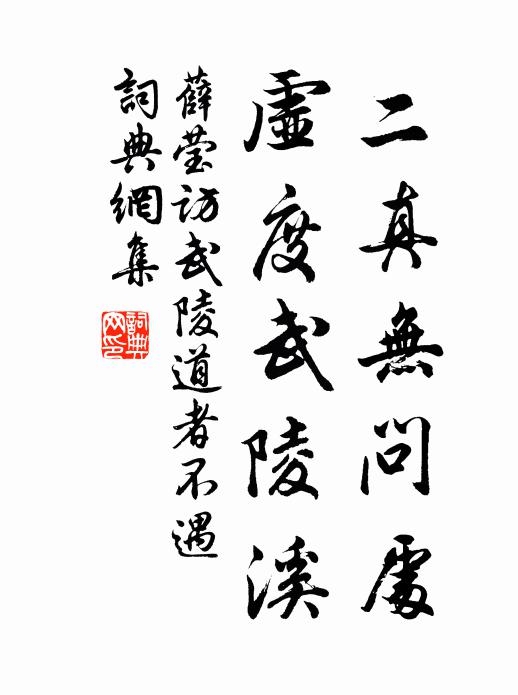 二真無問處
虛度武陵溪
薛瑩訪武陵道者不遇
詞典網集
詞典网印